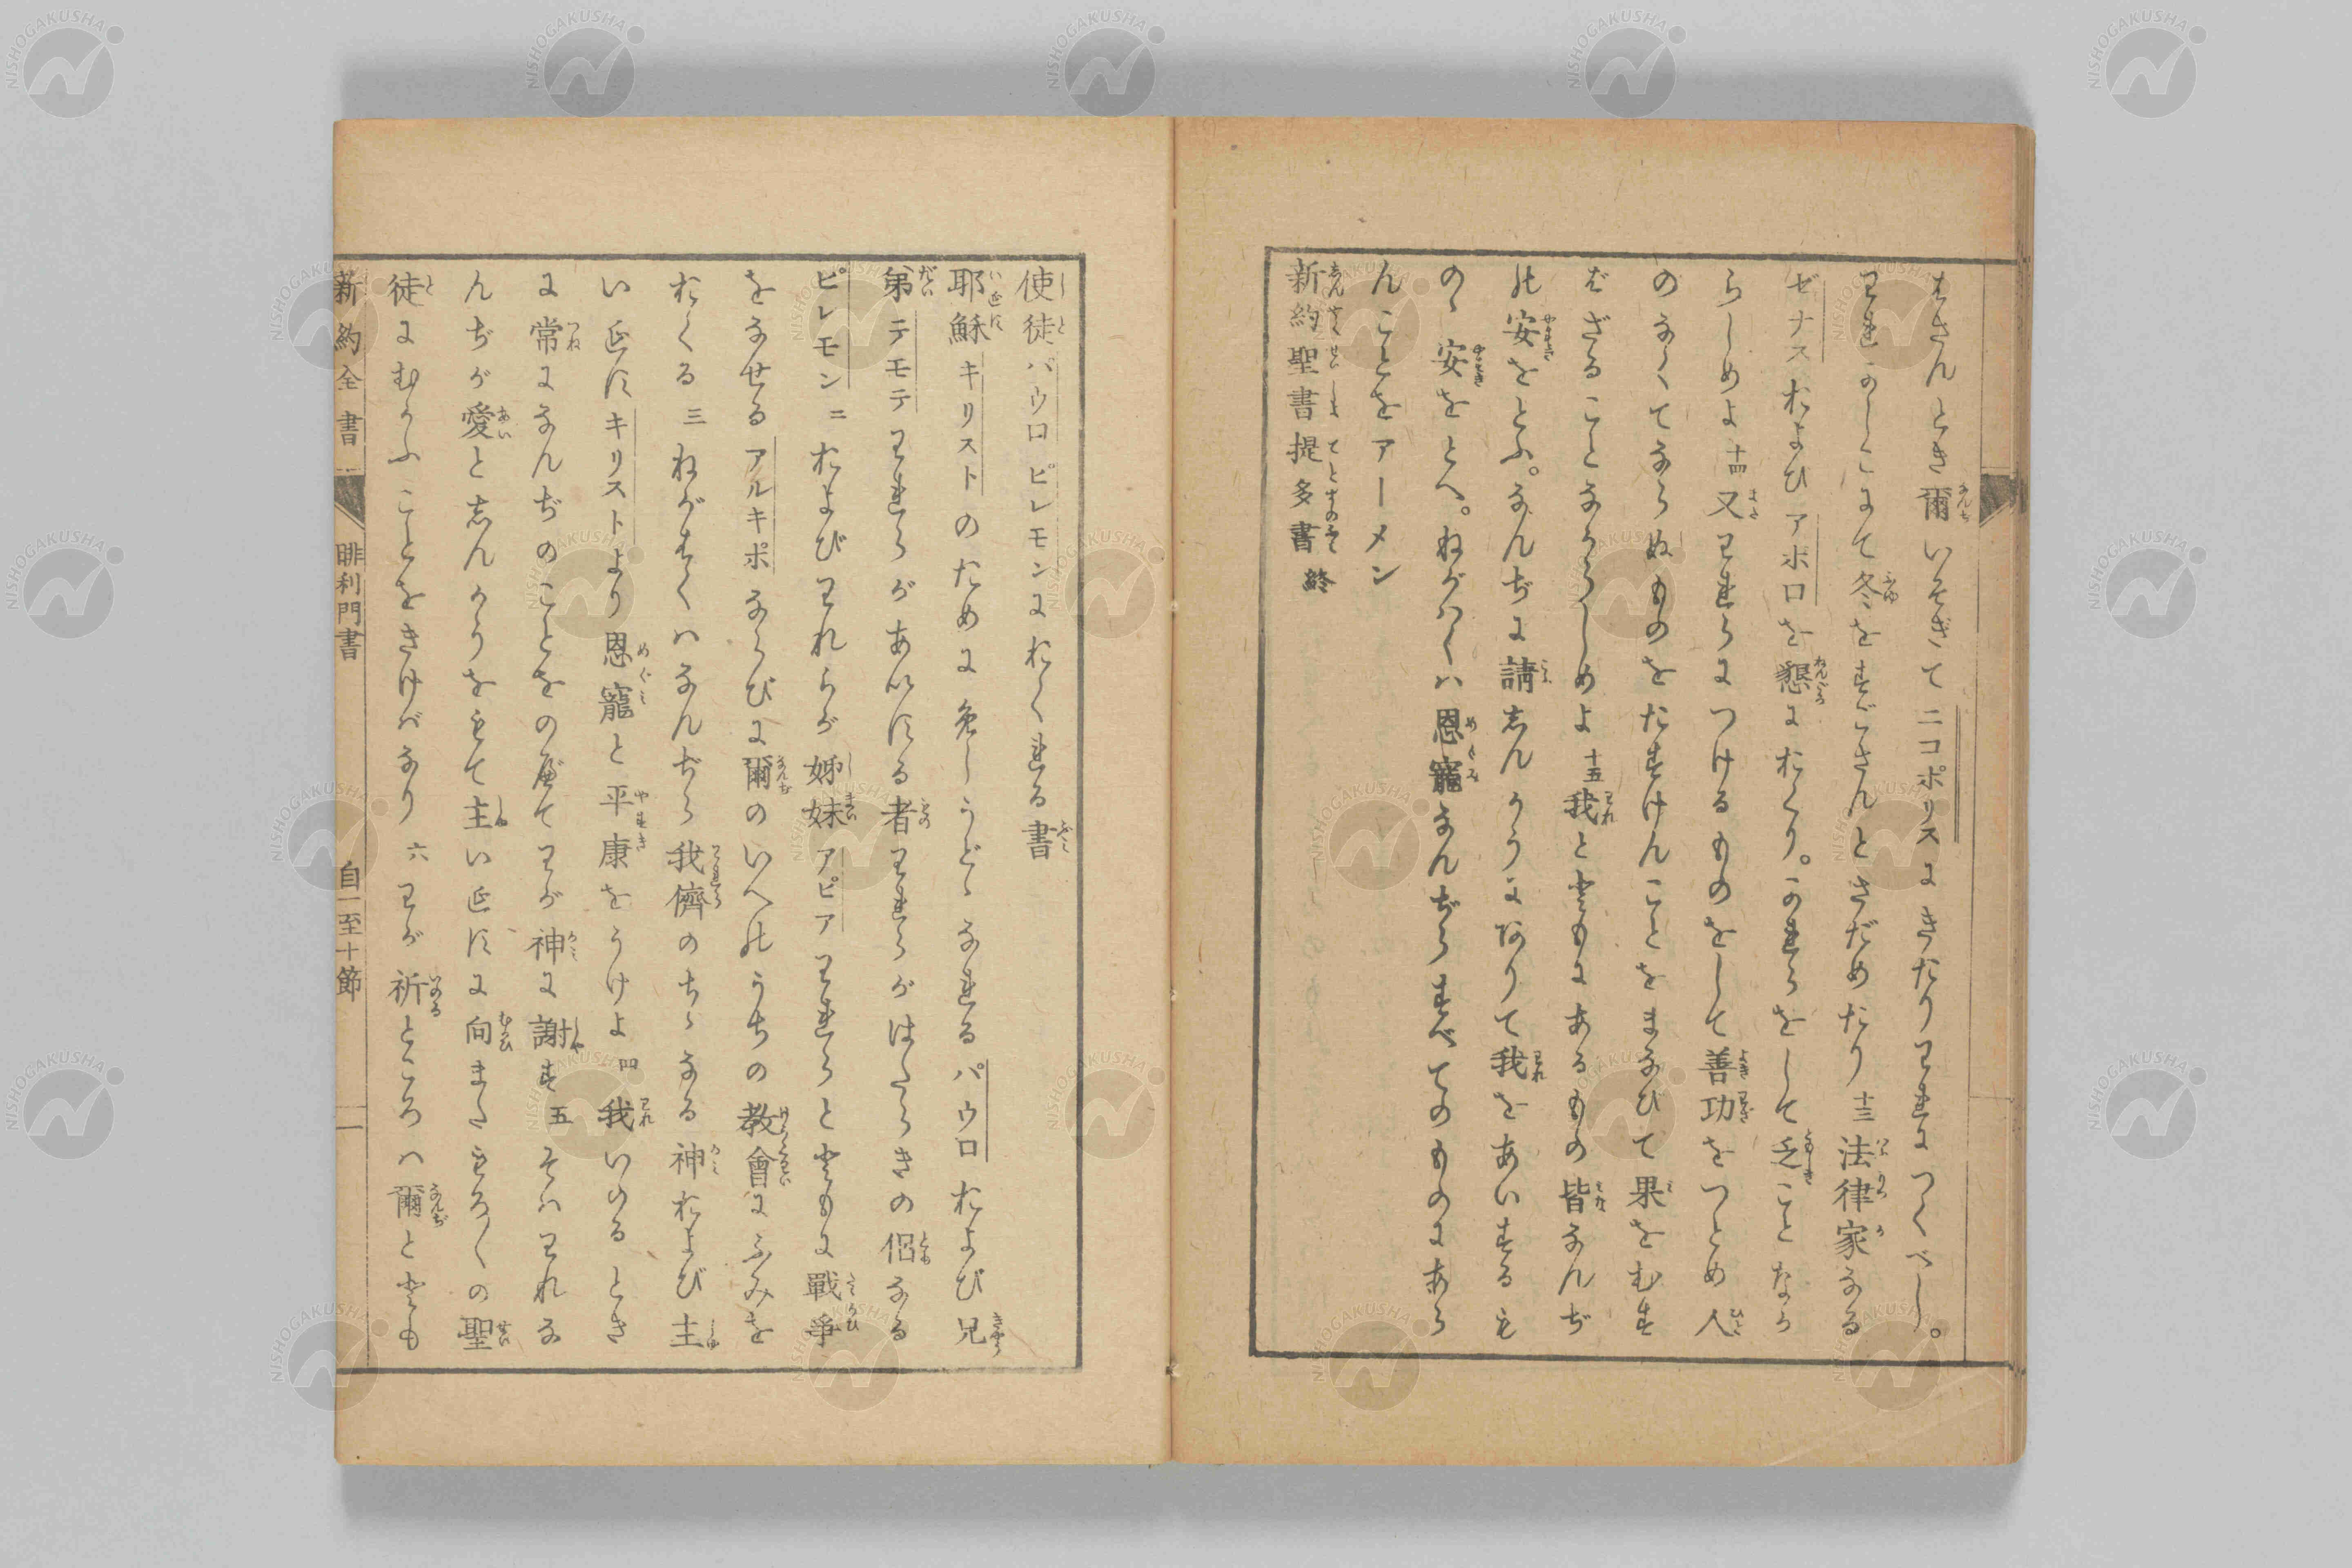 はさんとき爾いそぎてニコポリスにきたりわれにつくべし。
われかしこにて冬をすごさんとさだめたり 十三 法律家なる
ゼナスおよびアポロを懇におくり。かれらをして乏ことなか
らしめよ 十四 又われらにつけるものをして善功をつとめ人
のなくてならぬものをたすけんことをまなびて果をむす
ばざることなからしめよ 十五 我とともにあるもの皆なんぢ
の安をとふ。なんぢに請しんかうになりて我をあいするも
のゝ安をとへ。ねがハくハ恩寵なんぢらすべてのものにあら
んことをアーメン
新約聖書提多書 終
使徒パウロピレモンにおくれる書
耶穌キリストのために囚うどゝなれるパウロおよび兄
弟テモテわれらがあいする者われらがはたらきの侶なる
ピレモン 二 およびわれらが姊妹アピアわれらとともに戰爭
をなせるアルキポならびに爾のいへのうちの教會にふみを
おくる 三 ねがはくハなんぢら我儕のちゝなる神および主
いエスキリストより恩寵と平康をうけよ 四 我いのるとき
に常になんぢのことをのべてわが神に謝す 五 そハわれな
んぢが愛としんかうをもて主いエスに向またもろ〳〵の聖
徒にむかふことをきけバなり 六 わが祈ところハ爾ととも
新約全書 腓利門書 自一至十節 一